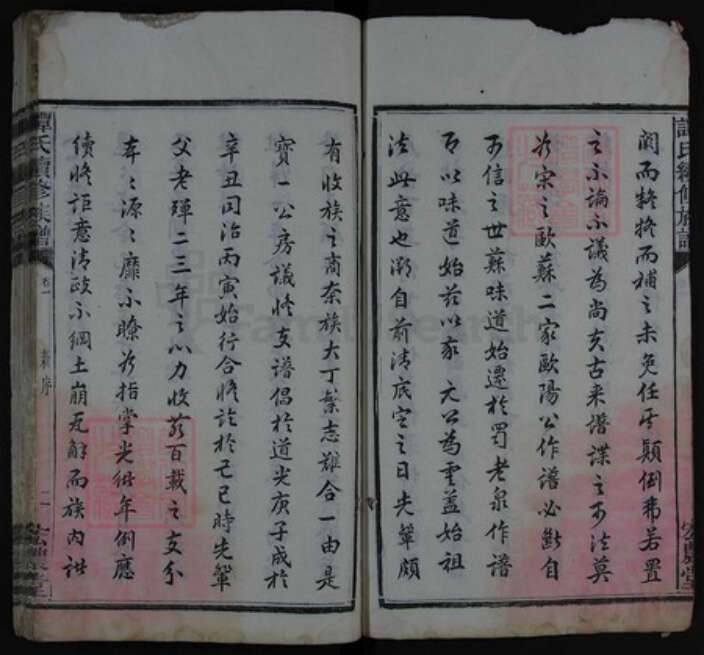 闕而務將而補之未免任歧顛倒弗若置
之不論不議為尚矣古來譜諜之可法莫
如宗之歐蘇二家歐陽公作譜必斷自
可信之世蘇味道始遷於蜀老泉作譜
即以味道始茲以家元公為雲蓋始祖
法此意也溯自前清底定之日先輩頗
有收族之商奈族大丁繁志難合一由是
寶一公房議修支譜倡於道光庚子成於
辛丑同治丙寅始行合修訖於己巳時先輩
父老殫二三年之心力收前百載之支分
本本源源靡不瞭如指掌光緒年例應
續修詎意清政不綱土崩瓦解而族內誰
譚氏續修族譜
卷一
新序
二
宏農堂
譚氏續修族譜
宏農堂